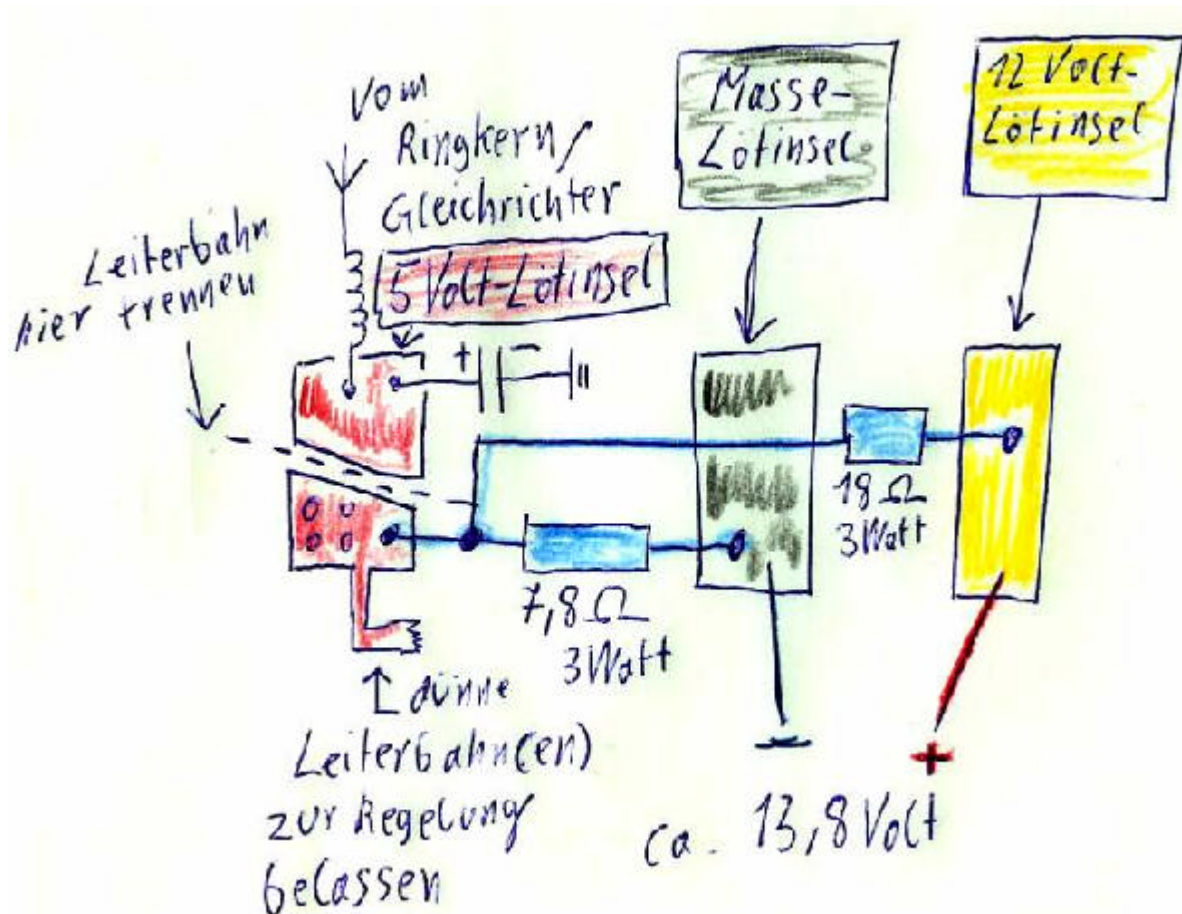 Vom
Ringkern/
Gleichrichter
5 Volt-Lötinsel
Leiterbahn
hier trennen
Masse-
Lötinsel
12 Volt-
Lötinsel
+ –
18 Ω
3 Watt
7,8 Ω
3 Watt
dünne
Leiterbahn(en)
zur Regelung
belassen
– +
ca. 13,8 Volt